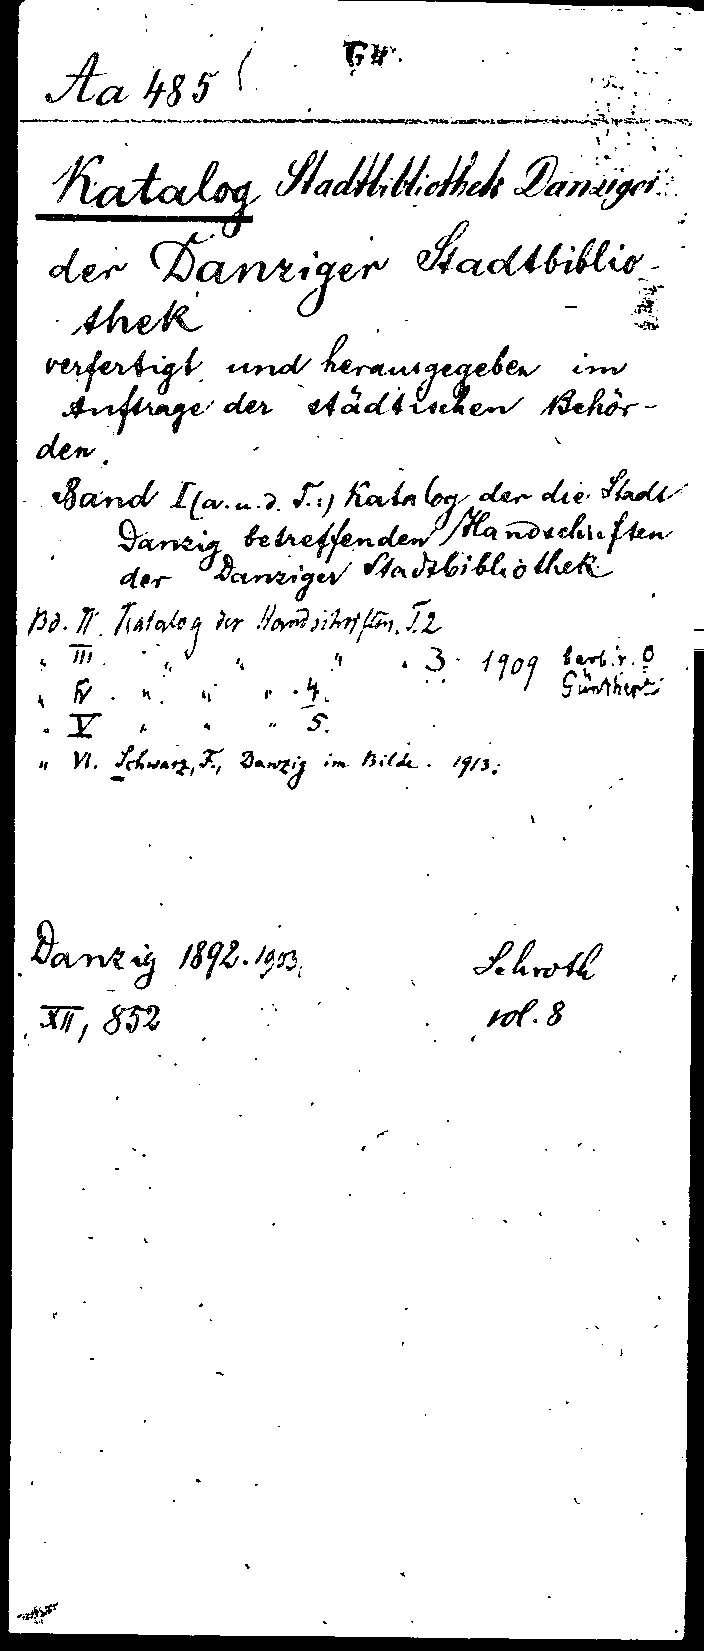 Aa 485
Katalog Stadtbibliothek Danziger
der Danziger Stadtbiblio-
thek
verfertigt und herausgegeben im
Auftrage der städtischen Behör-
den.
Band I (a. u. d. T.:) Katalog der die Stadt
Danzig betreffenden Handschriften
der Danziger Stadtbibliothek
Bd. II. Katalog der Handschriften. T. 2
" III. " " " " 3. 1909 bearb. v. O
Günther
" IV. " " " 4.
" V " " " 5.
" VI. Schwarz, F., Danzig im Bilde. 1913.
Danzig 1892. 1903. Schroth
XII, 852 vol. 8